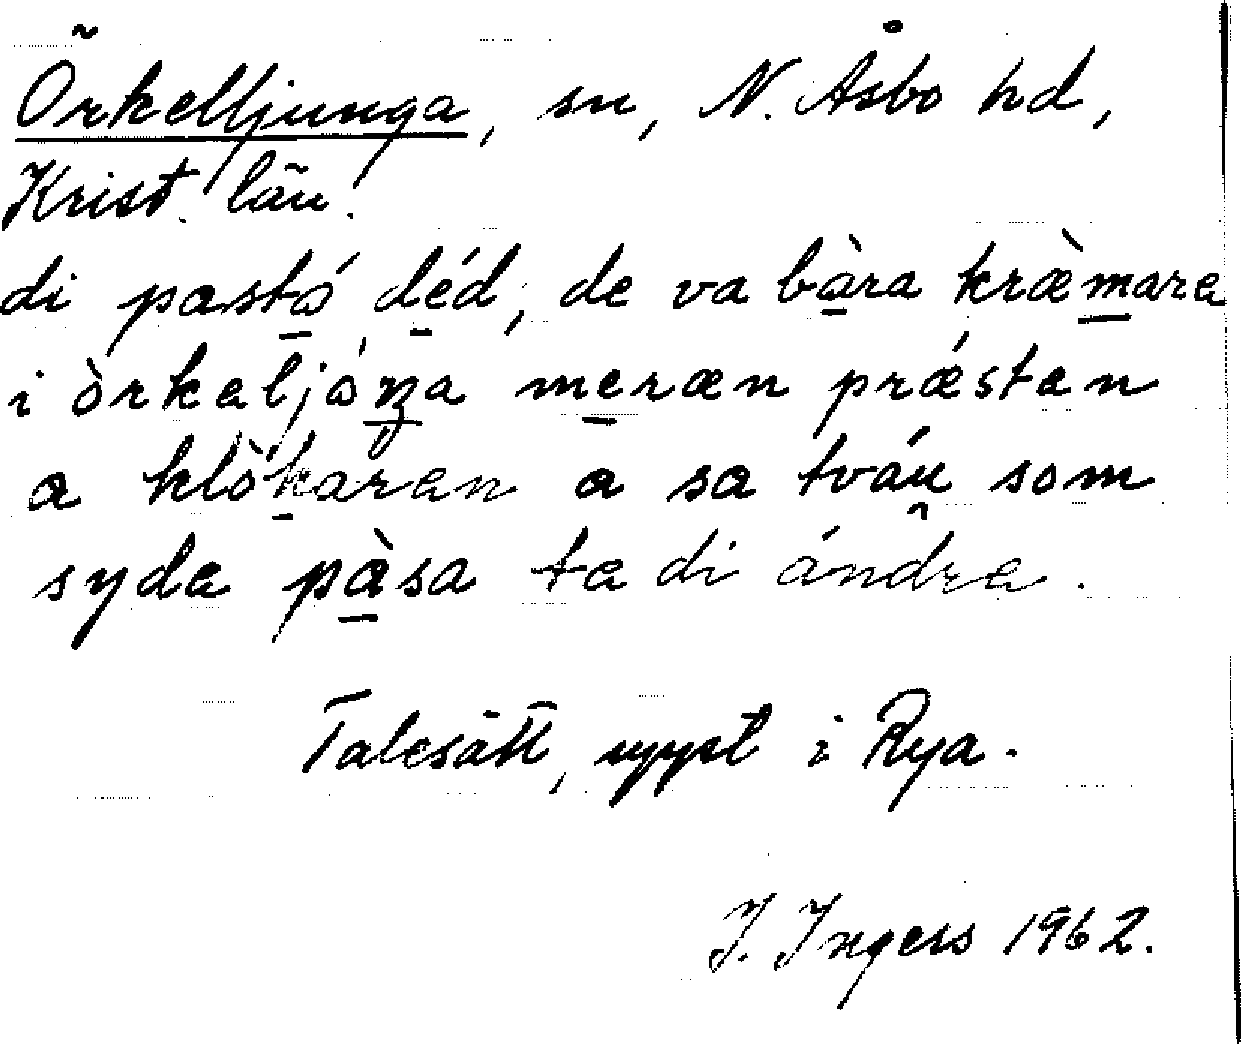 Örkelljunga, sn, N. Åsbo hd,
Krist. län.
di pastó déd, de va bàra kræ̀mara
i òrkaljóŋa meræn prǽsten
a klòkaren a sa tváu som
syda pàsa ta di ándra.
Talesätt, uppt i Rya.
I. Ingers 1962.